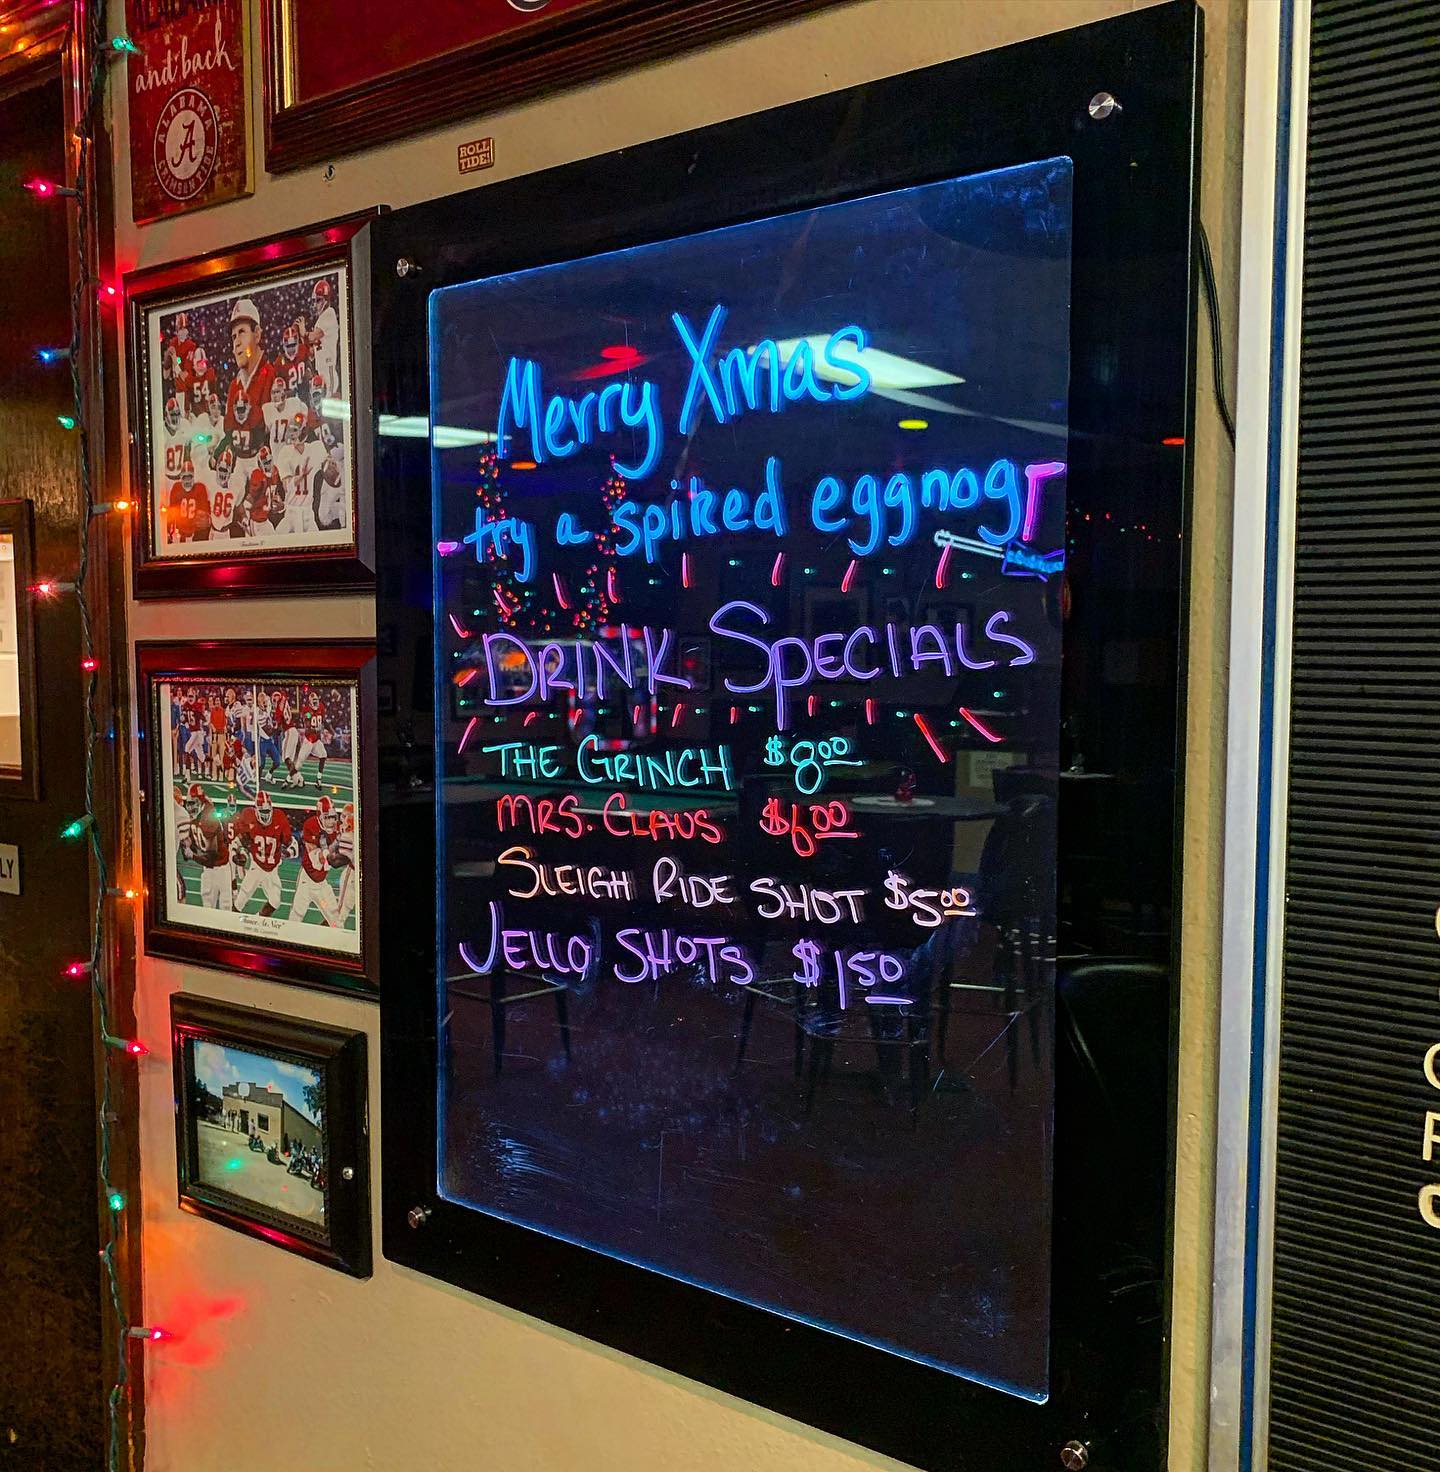 and back
ALABAMA
A
CRIMSON TIDE
ROLL
TIDE!
Merry Xmas
try a spiked eggnog
DRINK SPECIALS
THE GRINCH $8.00
MRS. CLAUS $6.00
SLEIGH RIDE SHOT $5.00
JELLO SHOTS $1.50
54
20
37
17
87
82
86
11
37
LY